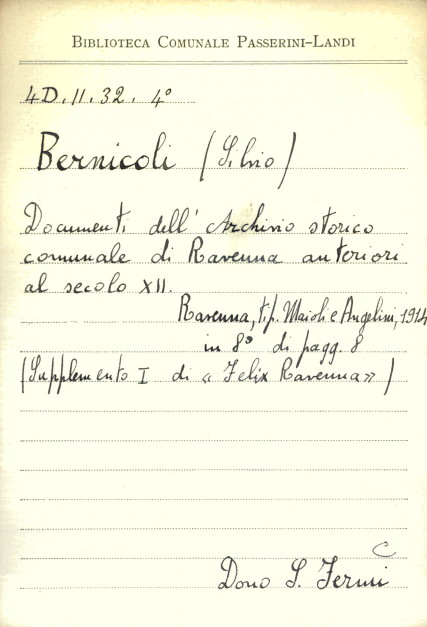 BIBLIOTECA COMUNALE PASSERINI-LANDI
4D. 11. 32. 4°
Bernicoli (Silvio)
Documenti dell' Archivio storico
comunale di Ravenna anteriori
al secolo XII.
Ravenna, tip. Maioli e Angelini, 1914
in 8° di pagg. 8
(Supplemento I di « Felix Ravenna» )
C
Dono S. Fermi